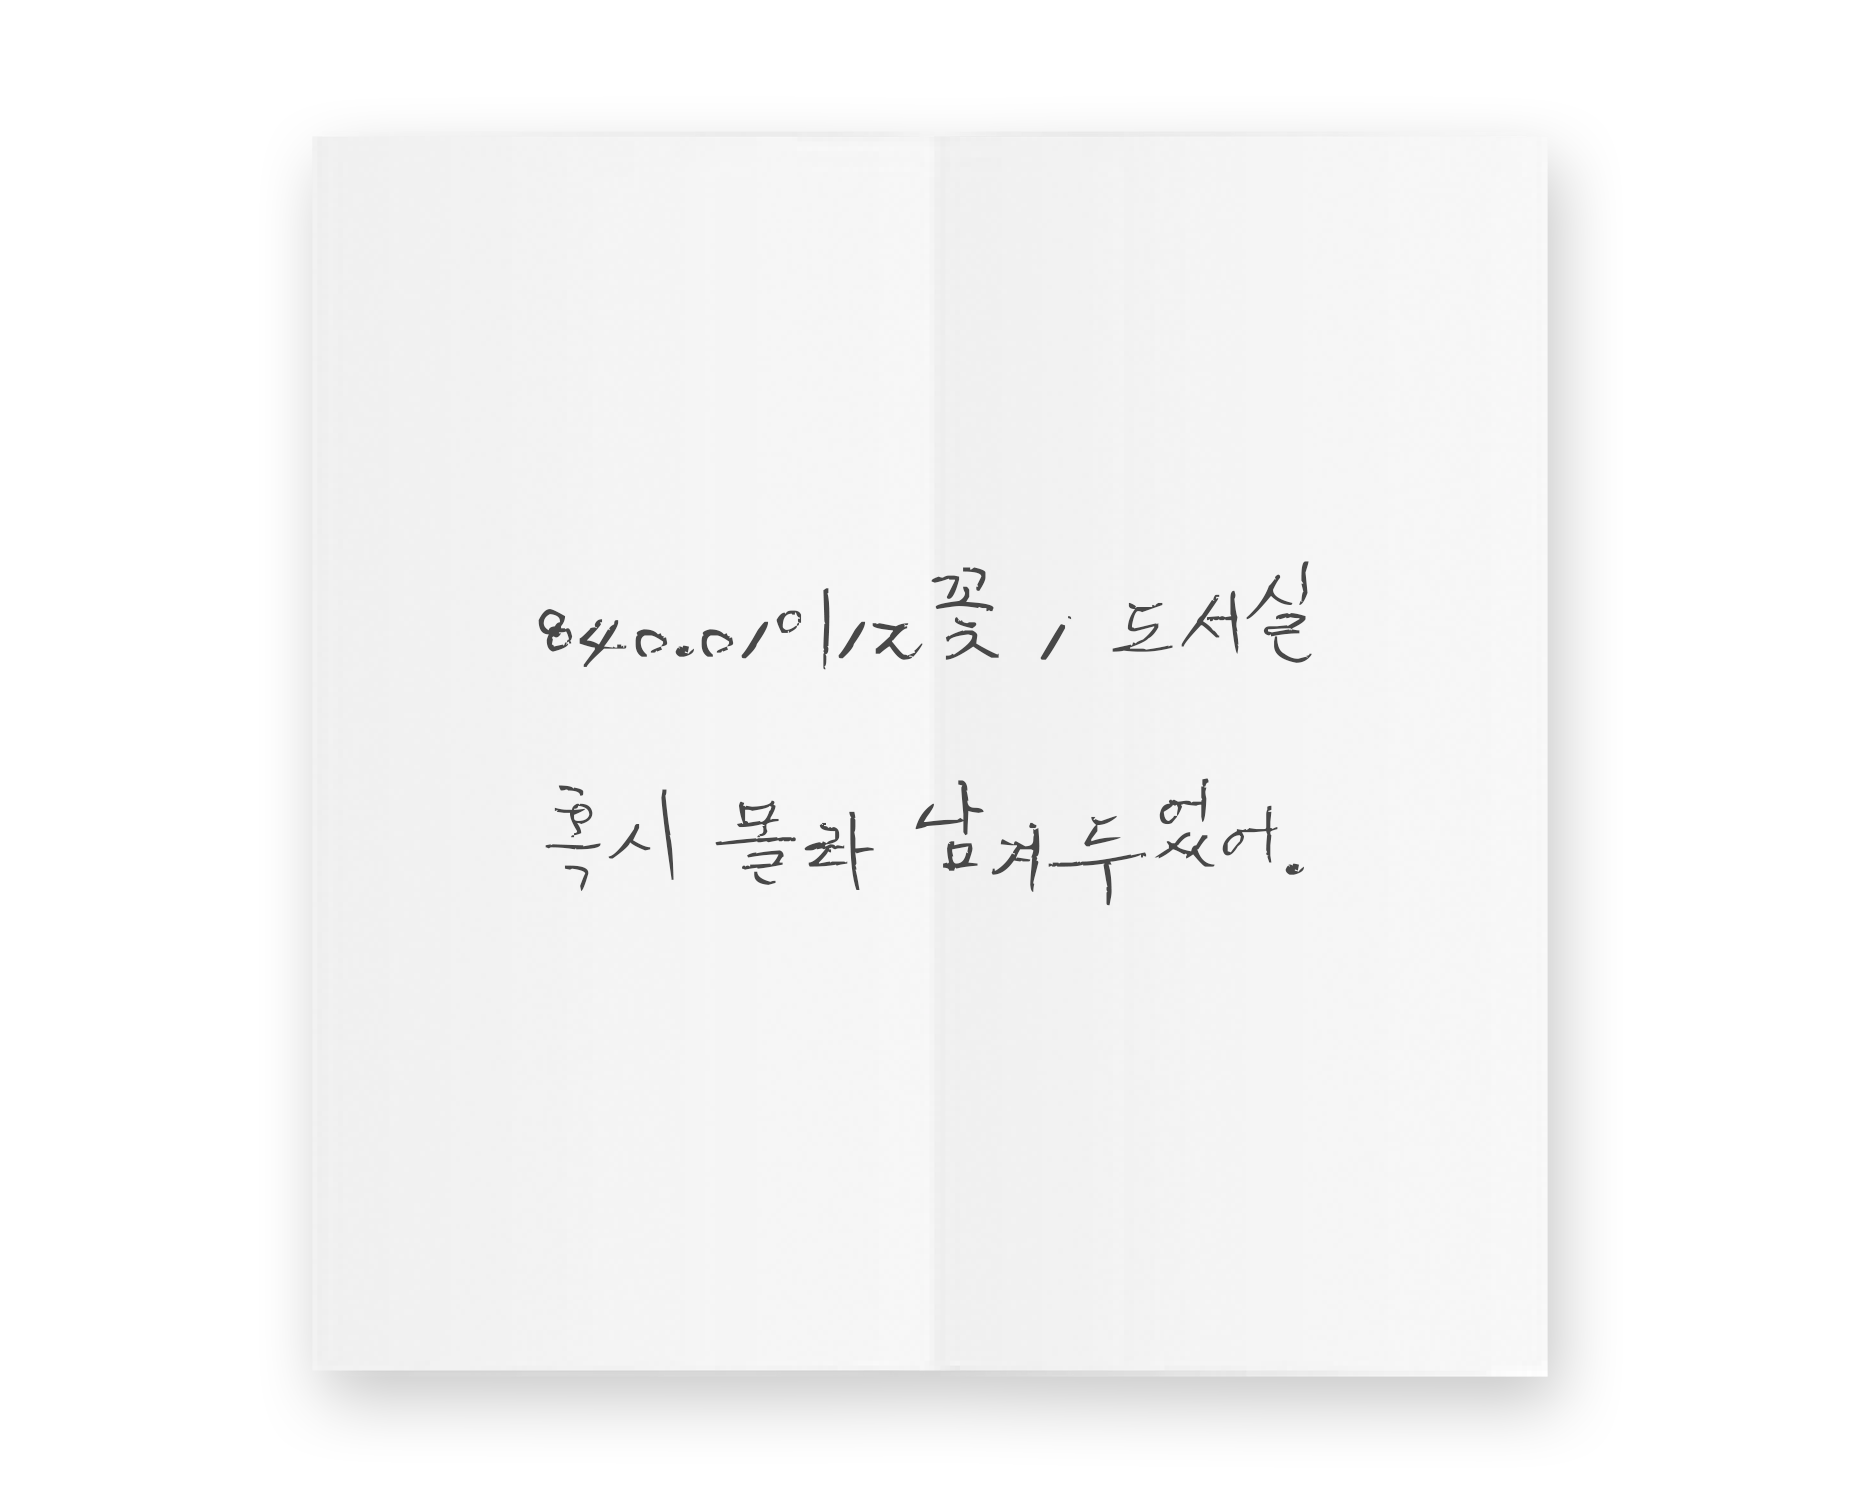 840.01이1ㅈ꽃 , 도서실
혹시 몰라 남겨두었어.